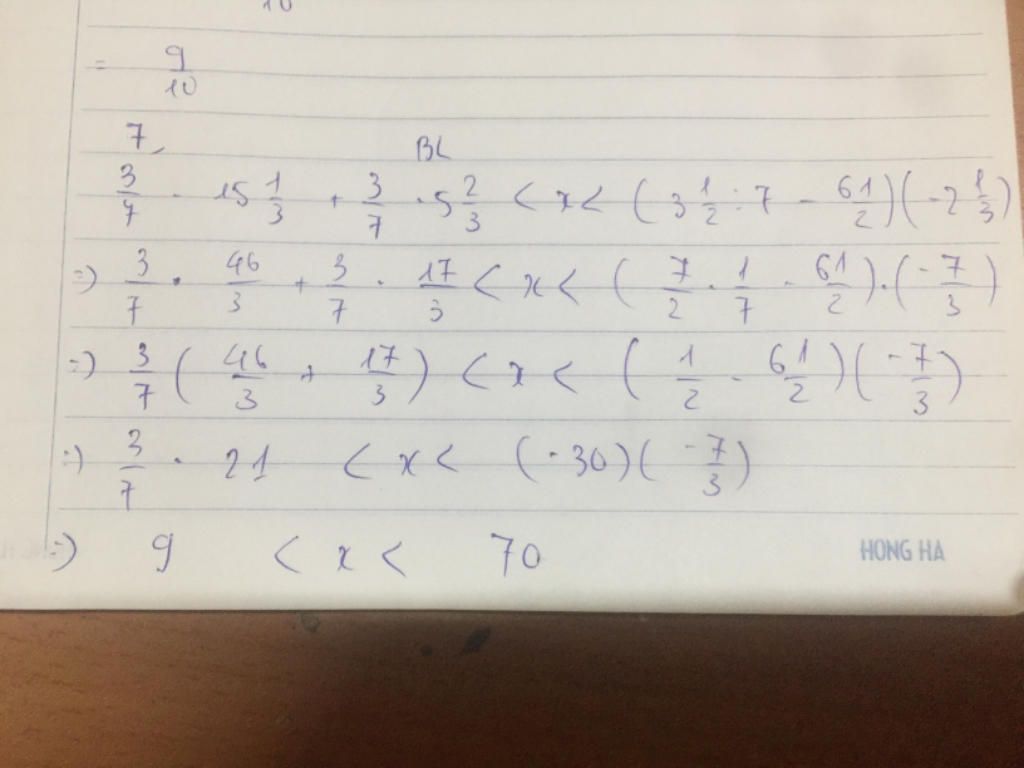 10
= 9/10
7,
BL
3/7 · 15 1/3 + 3/7 · 5 2/3 < x < (3 1/2 : 7 - 61/2)(-2 1/3)
=) 3/7 · 46/3 + 3/7 · 17/3 < x < (7/2 · 1/7 - 61/2) · (-7/3)
=) 3/7 (46/3 + 17/3) < x < (1/2 - 61/2)(-7/3)
=) 3/7 · 21 < x < (-30)(-7/3)
=) 9 < x < 70
HONG HA